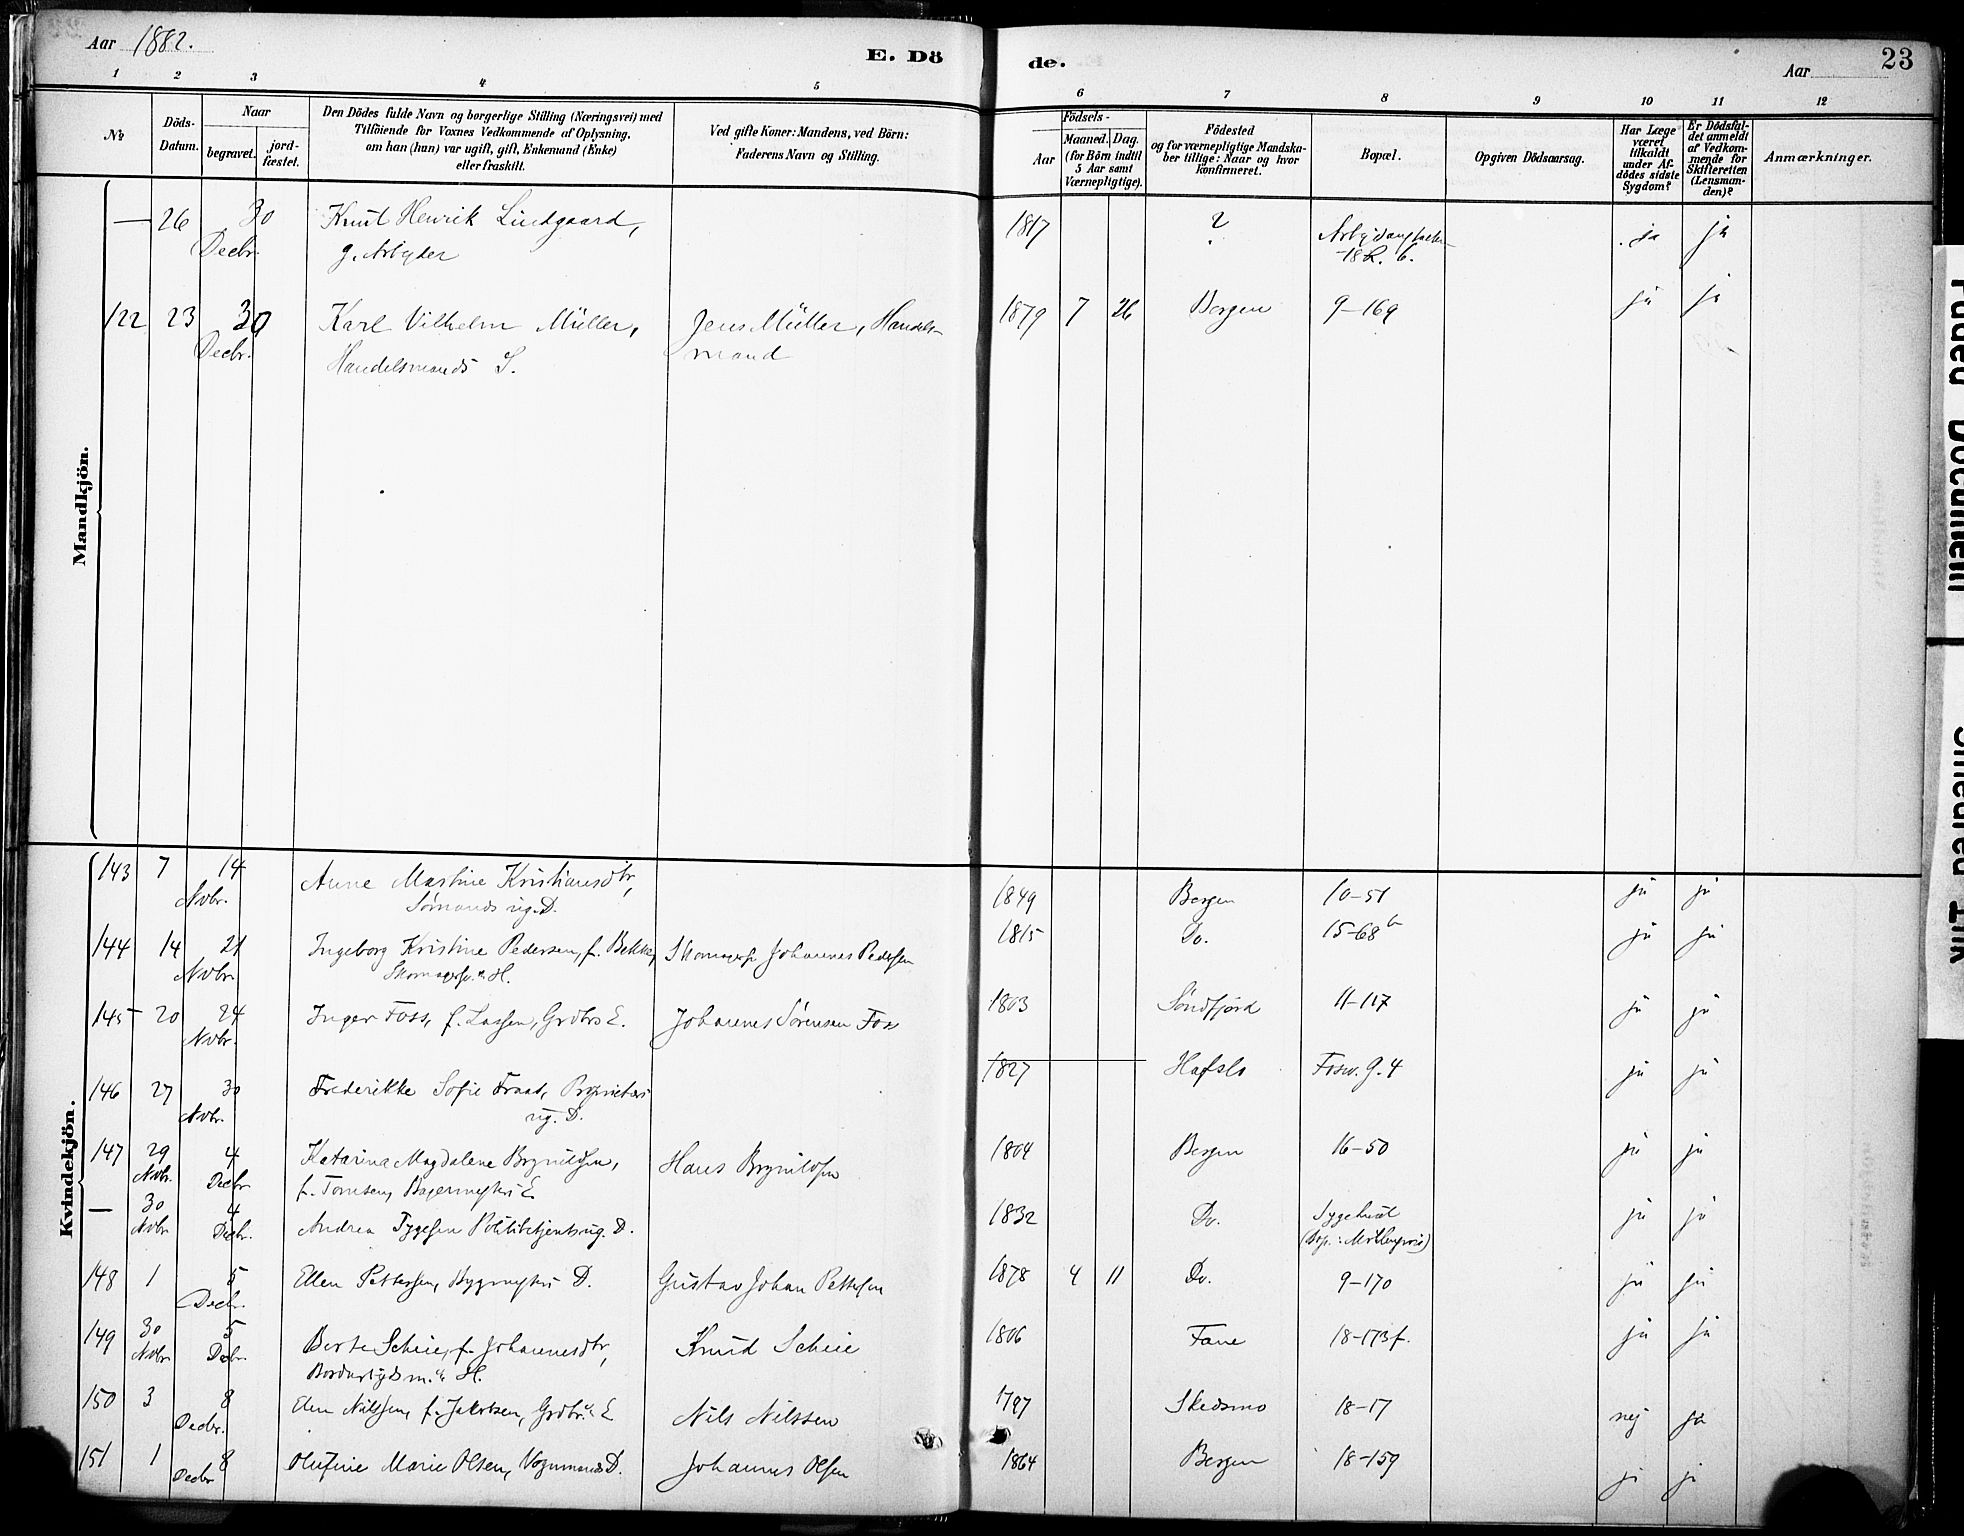 Aar 1882.
E. Dö
de.
Aar
23
1 2 3 4 5 6 7 8 9 10 11 12
No
Döds-Datum.
Naar
begravet.
jord-fæstet.
Den Dödes fulde Navn og borgerlige Stilling (Næringsvei) med
Tilföiende for Voxnes Vedkommende af Oplysning,
om han (hun) var ugift, gift, Enkemand (Enke)
eller fraskilt.
Ved gifte Koner: Mandens, ved Börn:
Faderens Navn og Stilling.
Födsels-
Aar
Maaned. Dag.
(for Börn indtil
5 Aar samt
Værnepligtige).
Födested
og for værnepligtige Mandska-
ber tillige: Naar og hvor
konfirmeret.
Bopæl.
Opgiven Dödsaarsag.
Har Læge
været
tilkaldt
under Af-
dödes sidste
Sygdom?
Er Dödsfal-
det anmeldt
af Vedkom-
mende for
Skifteretten
(Lensman-
den)?
Anmærkninger.
Mandkjön.
— 26 30 Knut Henrik Lindgaard, 1817 ? ja ja
Decbr. g. Arbeider 18 R. 6.
122 23 30 Karl Vilhelm Müller, Jens Müller, Handels- 1879 7 26 Bergen 9-169 ja ja
Decbr. Handelsmands S. mand
Kvindekjön.
143 7 14 Anne Martine Kristiansdtr, 1849 Bergen 10-51 ja ja
Nvbr. Sömands ug. D.
144 14 21 Ingeborg Kristine Pedersen, f. Bekke, Johannes Pedersen 1815 Do. 15-68b ja ja
Nvbr. H.
145 20 24 Inger Foss, f. Lassen, Grdbrs E. Johannes Sörensen Foss 1803 Söndfjord 11-117 ja ja
Nvbr.
146 27 30 Frederikke Sofie 1827 Hafslo 9.4 ja ja
Nvbr. ug. D.
147 29 4 Katarina Magdalene Brynildsen, Hans Brynildsen 1804 Bergen 16-50 ja ja
Nvbr. Decbr f. Tomsen, Bagermesters E
— 30 4 Andrea Tygesen Politibetjents ug. D. 1832 Do. Sygehuset ja ja
Nvbr Decbr.
148 1 5 Ellen Pettersen, Bygmesters D. Gustav Johan Pettersen 1878 4 11 Do. 9-170 ja ja
Decbr.
149 30 5 Berte Scheie, f. Johannesdtr, Knud Scheie 1806 Fane 18-173f. ja ja
Nvbr Decbr. H.
150 3 8 Elen Nilssen, f. Jakobsen, Grdbr. E Nils Nilssen 1797 Skedsmo 18-17 nej ja
Decbr.
151 1 8 Olufine Marie Olsen, Vognmands D. Johannes Olsen 1864 Bergen 18-159 ja ja
Decbr
Faded Document
Smeared Ink